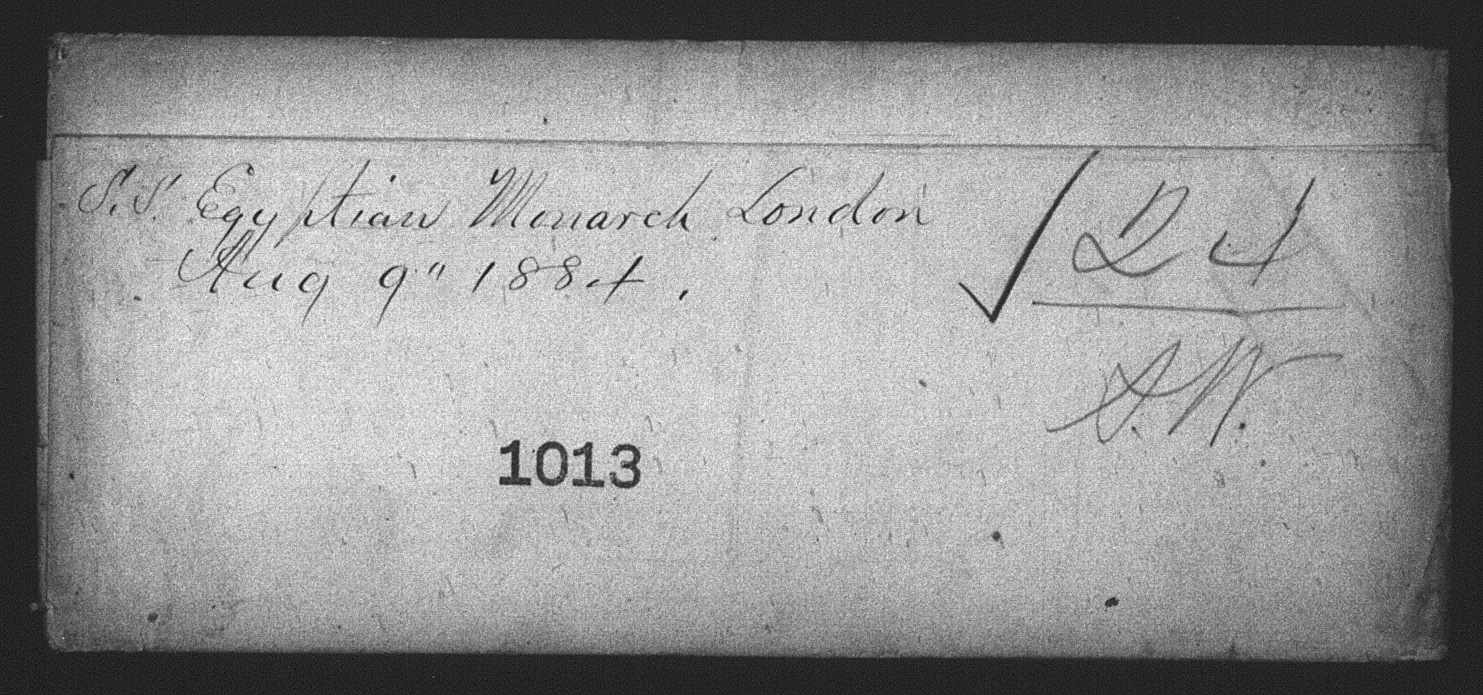 S.S. Egyptian Monarch London
Aug 9" 1884.
√ 24
S.W.
1013